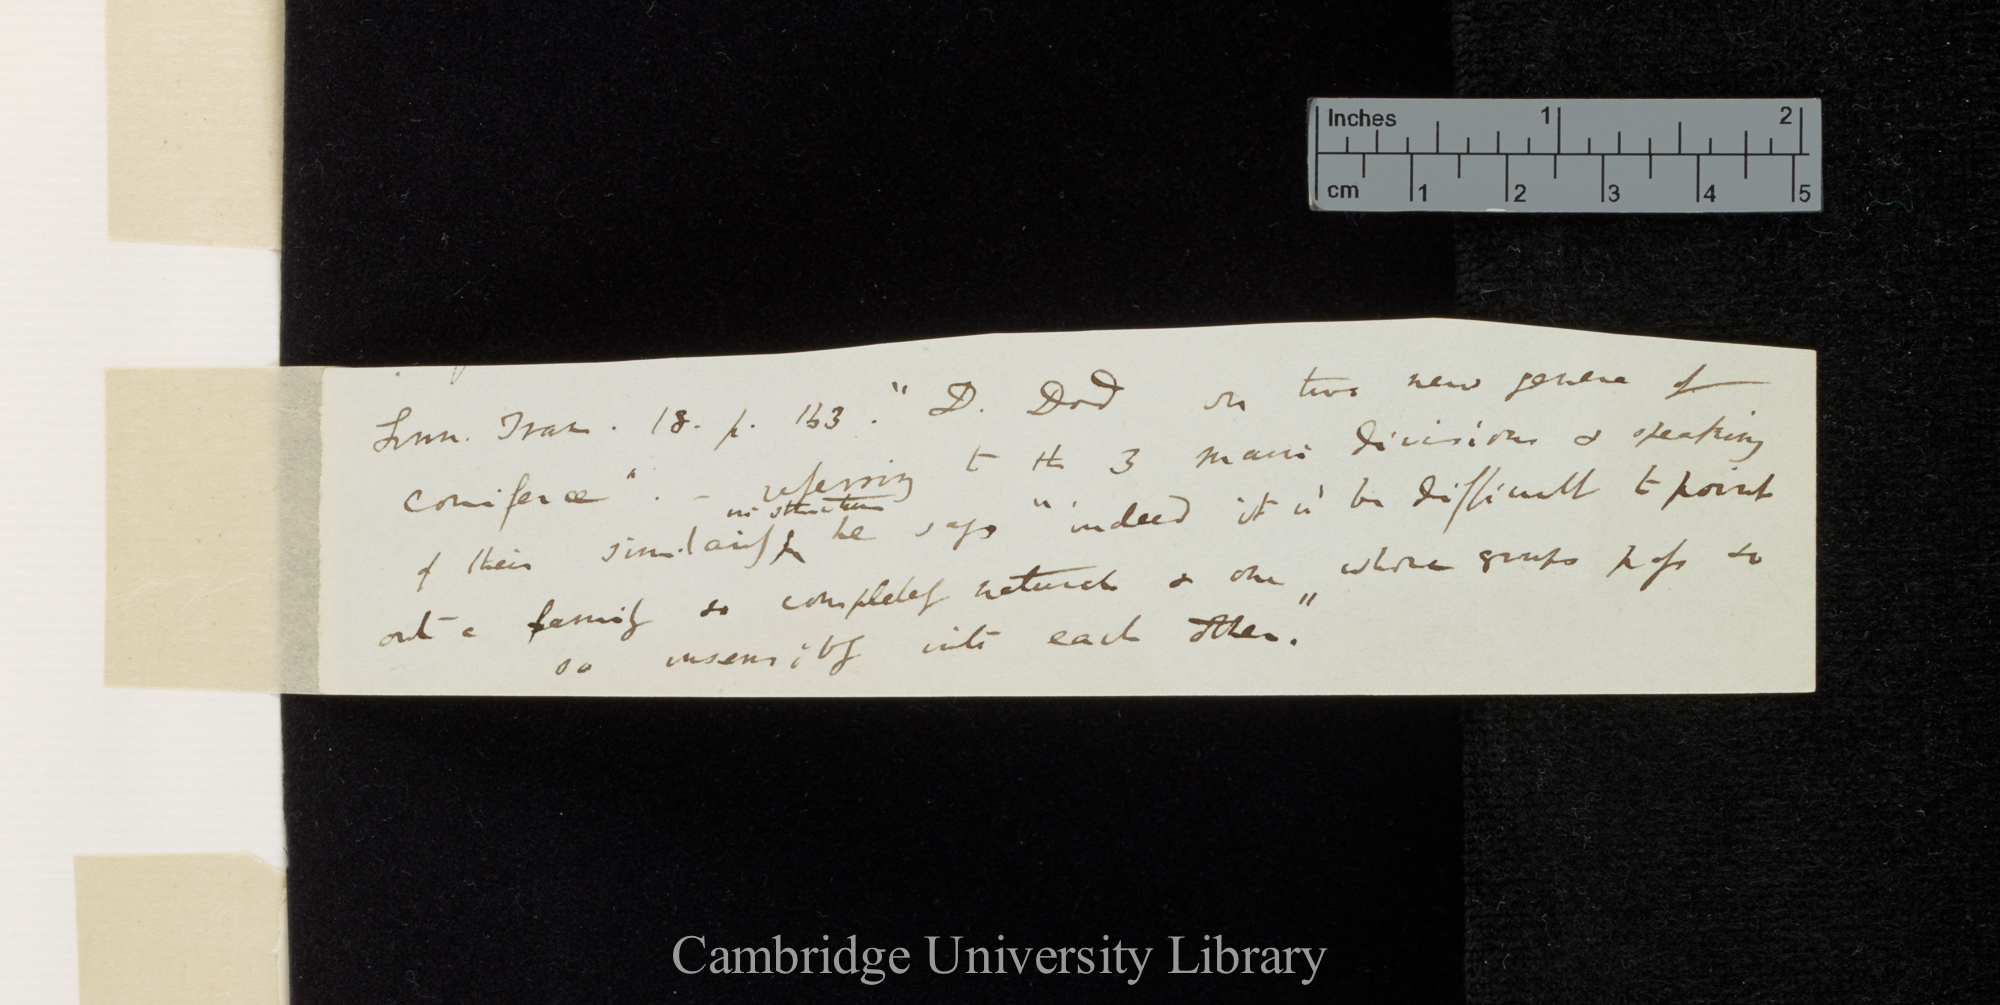 Inches 1 2
cm 1 2 3 4 5
Linn. Trans. 18. p. 163. "D. Don on two new genera of
Coniferæ". – referring to the 3 main divisions & speaking
in structure
of their similarity he says "indeed it wd be difficult to point
out a family so completely natural & one whose groups pass so
so insensibly into each other."
Cambridge University Library